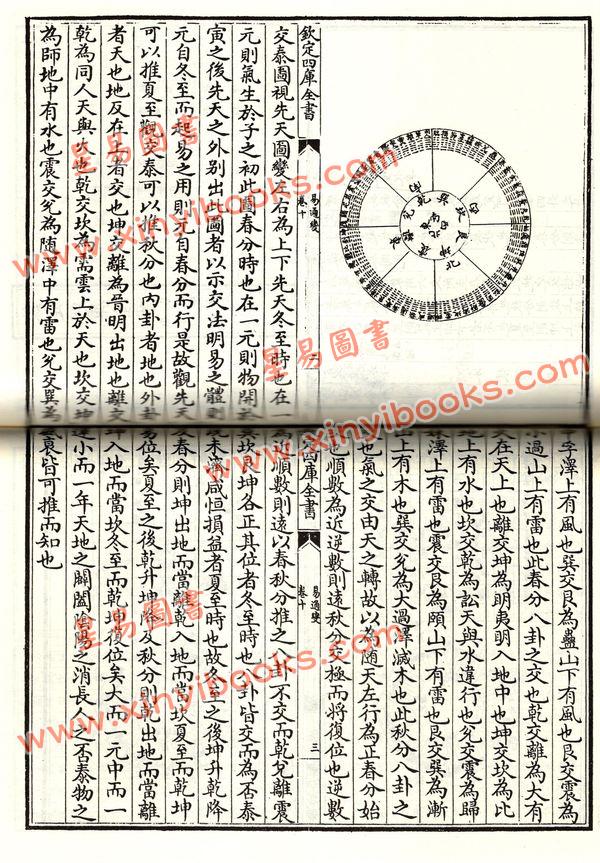 欽定四庫全書
易通變
卷十
二
交泰圖視先天圖變左右為上下先天冬至時也在一
元則氣生於子之初此圖春分時也在一元則物開於
寅之後先天之外别出此圖者以示交法明易之體則
元自冬至而起易之用則元自春分而行是故觀先天
可以推夏至觀交泰可以推秋分也内卦者地也外卦
者天也地反在上者交也坤交離為晉明出地也離交
乾為同人天與火也乾交坎為需雲上於天也坎交坤
為師地中有水也震交兌為随澤中有雷也兌交巽為
孚澤上有風也巽交艮為蠱山下有風也艮交震為
小過山上有雷也此春分八卦之交也乾交離為大有
在天上也離交坤為明夷明入地中也坤交坎為比
上有水也坎交乾為訟天與水違行也兌交震為歸
妹澤上有雷也震交艮為頤山下有雷也艮交巽為漸
上有木也巽交兌為大過澤滅木也此秋分八卦之
也氣之交由天之轉故以為随天左行為正春分始
也順數為近逆數則遠秋分交極而將復位也逆數
四庫全書
易通變
卷十
三
為近順數則遠以春秋分推之八卦不交而乾兌離震
坎艮坤各正其位者冬至時也八卦皆交而為否泰
未濟咸恒損益者夏至時也故冬至之後坤升乾降
及春分則坤出地而當離乾入地而當坎夏至而乾坤
易位矣夏至之後乾升坤降及秋分則乾出地而當離
坤入地而當坎冬至而乾坤復位矣大而一元中而一
運小而一年天地之闢闔陰陽之消長人之否泰物之
衰皆可推而知也
星易圖書
www.xinyibooks.com
星易圖書
www.xinyibooks.com
星易圖書
www.xinyibooks.com